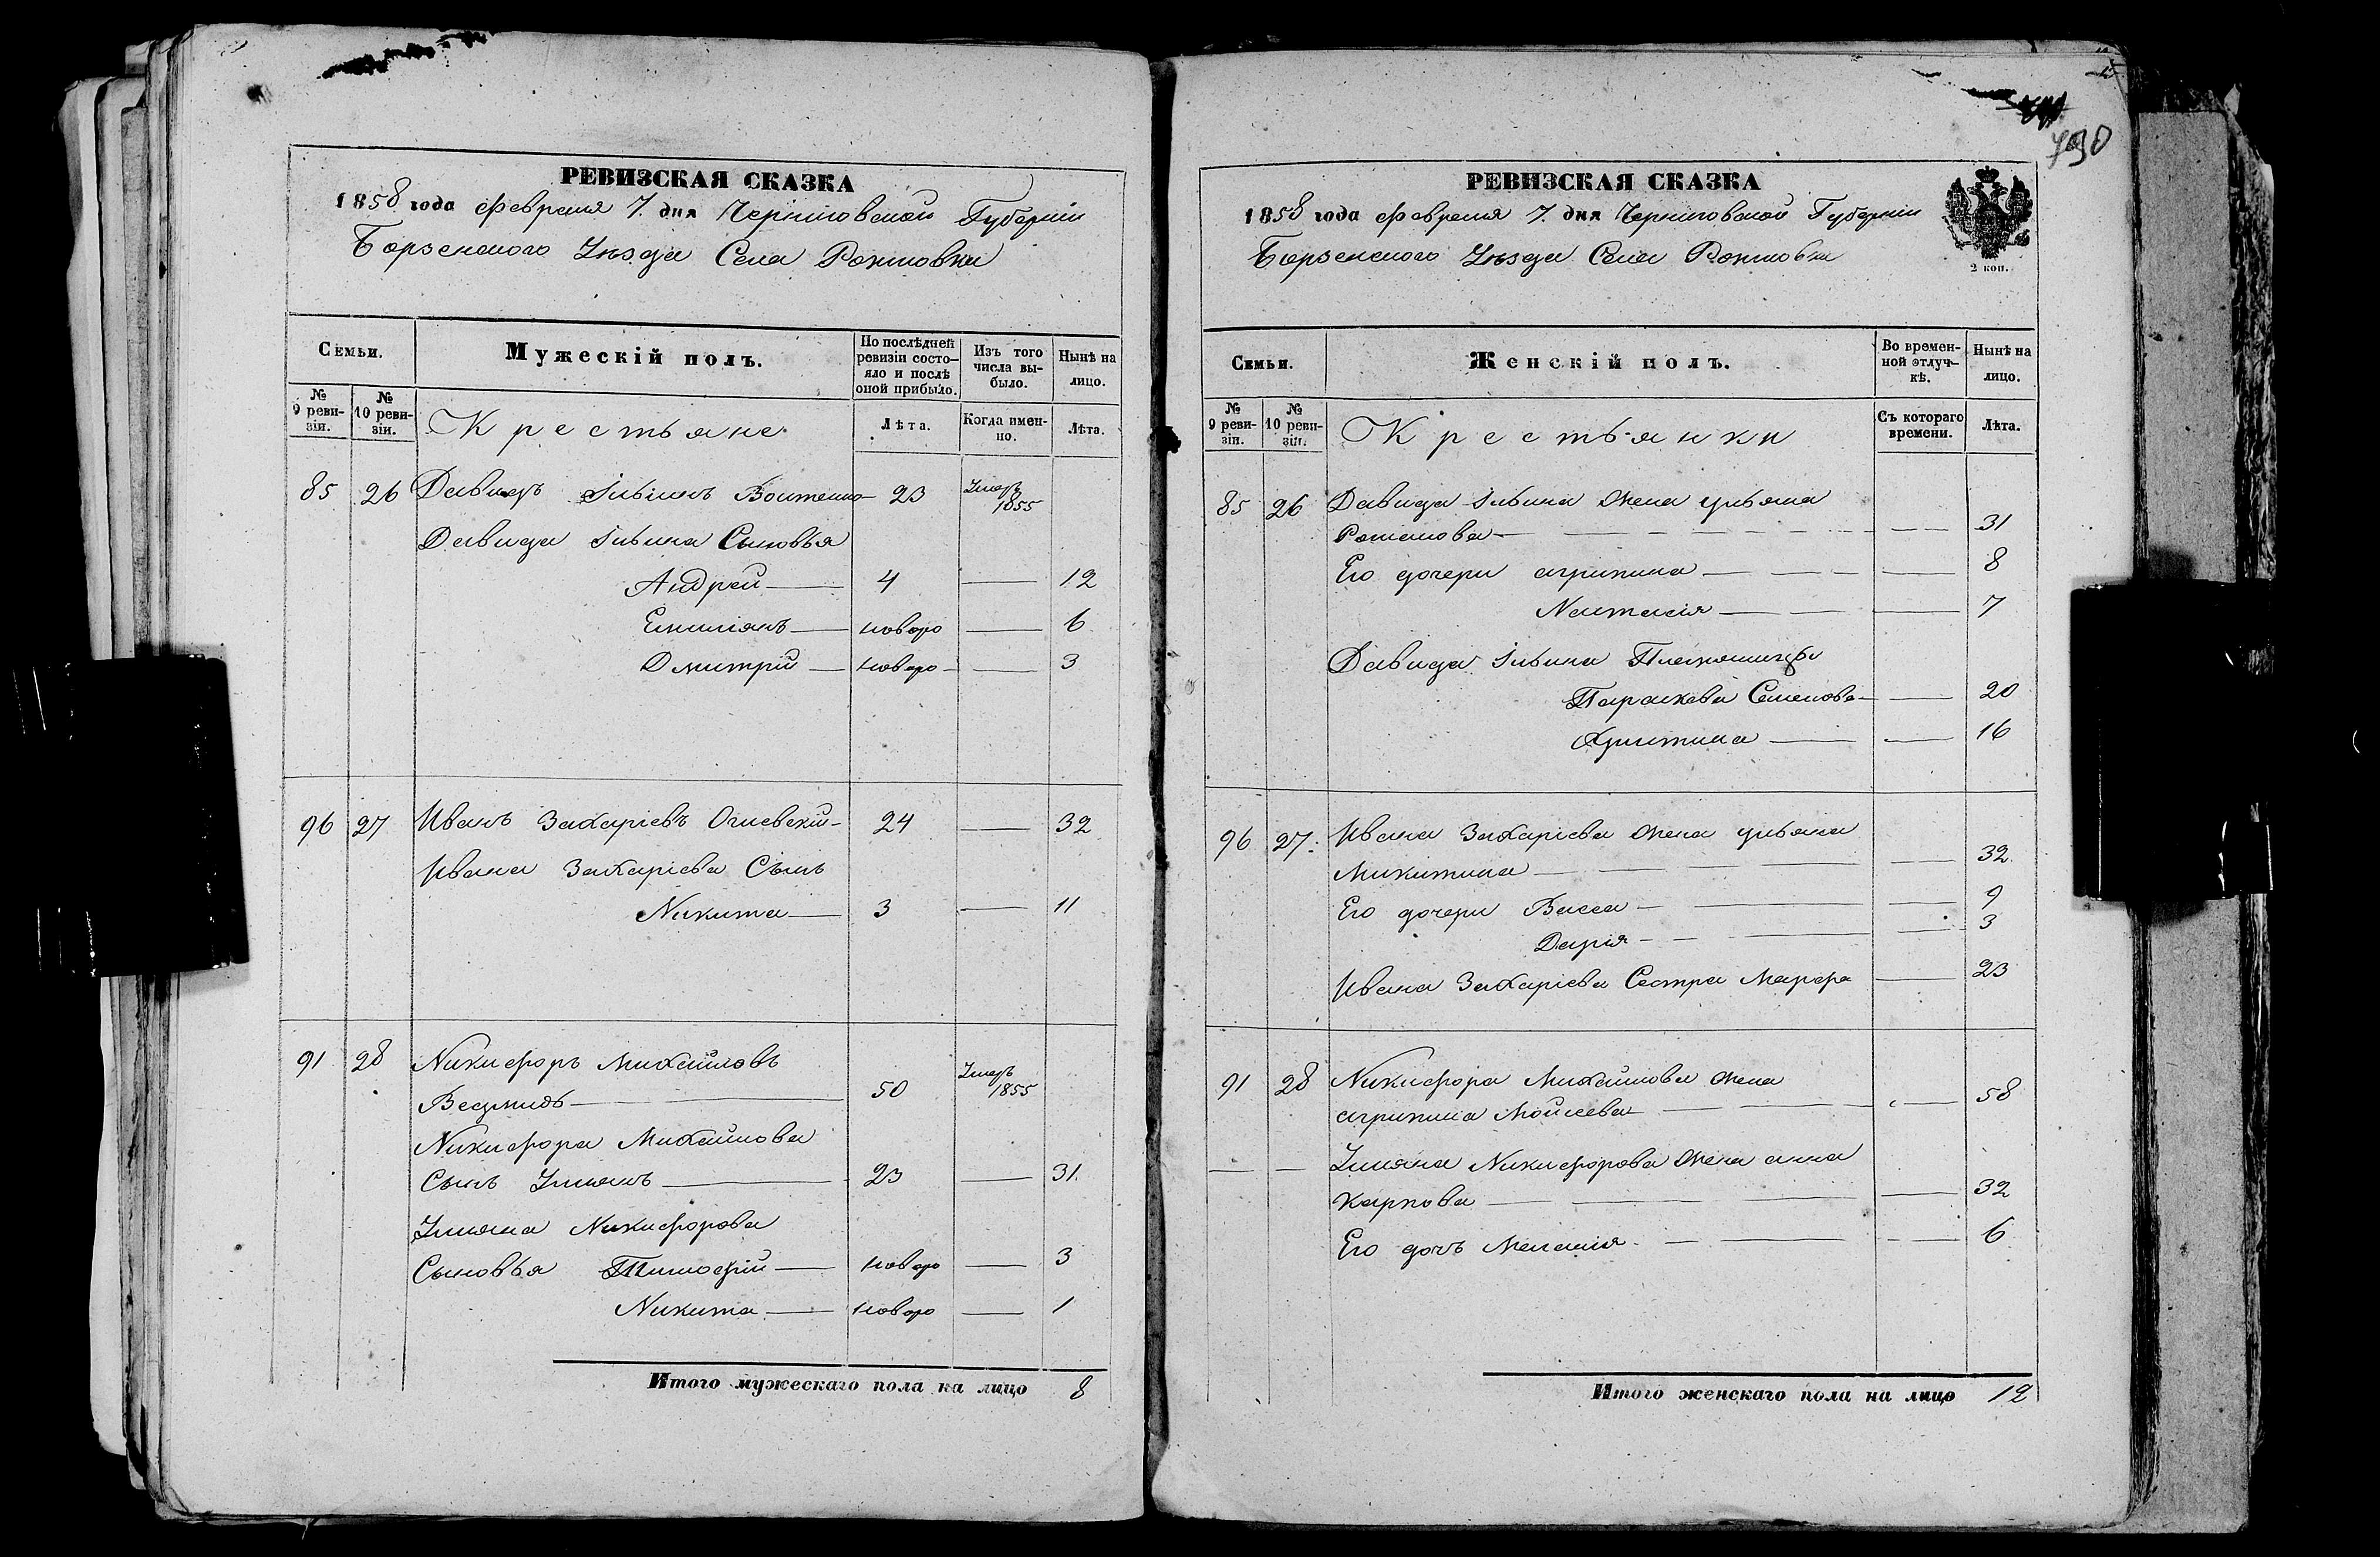 РЕВИЗСКАЯ СКАЗКА
1858 года Февраля 7. дня Черниговской Губерніи
Борзенского Уѣзда Села Рожновки
Семьи.
Мужескій полъ.
По послѣдней ревизіи состо-
яло и послѣ
оной прибыло.
Изъ того
числа вы-
было.
Нынѣ на
лицо.
№
9 реви-
зіи.
№
10 реви-
зіи.
Крестьяне
Лѣта.
Когда имен-
но.
Лѣта.
85 26 Давидъ Ильинъ 23 Умеръ 1855
Давида Ильина Сыновья
Андрей — 4 — 12
Емиліянъ — новоро — 6
Дмитрій — новоро — 3
96 27 Иванъ Захаріевъ Огиевскій 24 — 32
Ивана Захаріева Сынъ
Никита — 3 — 11
91 28 Никифоръ Михайловъ
50 Умеръ 1855
Никифора Михайлова
Сынъ — 23 — 31.
Никифорова
Сыновья Тимофій — новоро — 3
Никита — новоро — 1
Итого мужескаго пола на лицо 8
790
РЕВИЗСКАЯ СКАЗКА
1858 года Февраля 7. дня Черниговской Губерніи
Борзенского Уѣзда Села Рожновки
2 коп.
Семьи.
Женскій полъ.
Во времен-
ной отлуч-
кѣ.
Нынѣ на
лицо.
№
9 реви-
зіи.
№
10 реви-
зіи.
Крестьянки
Съ котораго
времени.
Лѣта.
85 26 Давида Ильина Жена Ульяна
Романова — — 31
Его дочери агрипина — — 8
Настасія — — 7
Давида Ильина Племянницы
Параскева Семенова — 20
Христина — — 16
96 27. Ивана Захаріева Жена Ульяна
Микитина — — 32
Его дочери Васса — — 9
Дарія — — 3
Ивана Захаріева Сестра Марфа — 23
91 28 Никифора Михайлова Жена
агрипина Мойсеева — — 58
— — Никифорова Жена анна
Карпова — — 32
Его дочь Меланія — — 6
Итого женскаго пола на лицо 12